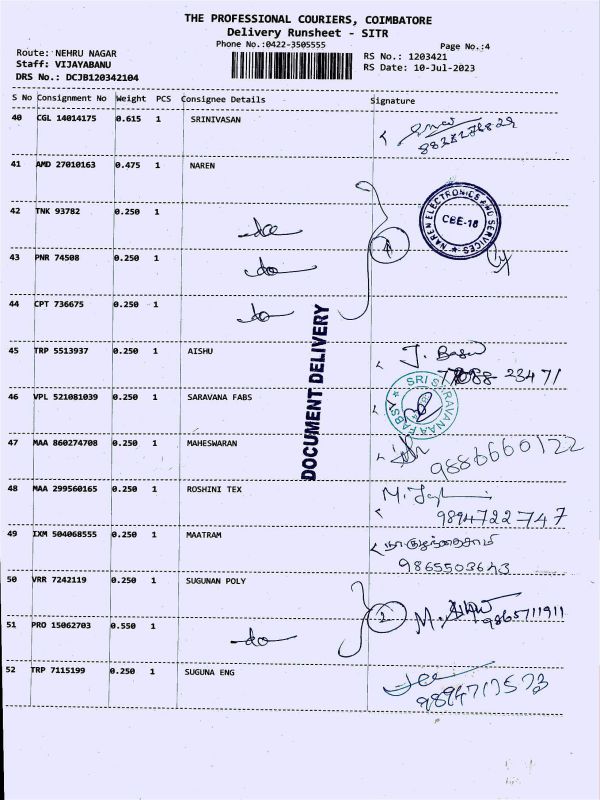 THE PROFESSIONAL COURIERS, COIMBATORE
Delivery Runsheet - SITR
Phone No.:0422-3505555
Page No.:4
Route: NEHRU NAGAR
RS No.: 1203421
Staff: VIJAYABANU
RS Date: 10-Jul-2023
DRS No.: DCJB120342104
S No Consignment No Weight PCS Consignee Details Signature
40 CGL 14014175 0.615 1 SRINIVASAN
41 AMD 27010163 0.475 1 NAREN
NAREN ELECTRONICS AND SERVICES
CBE-18
42 TNK 93782 0.250 1 do
43 PNR 74508 0.250 1 do
44 CPT 736675 0.250 1 do
DOCUMENT DELIVERY
45 TRP 5513937 0.250 1 AISHU J. Basu
46 VPL 521081039 0.250 1 SARAVANA FABS
SRI SARAVANAA FABSS
47 MAA 860274708 0.250 1 MAHESWARAN
9886660122
48 MAA 299560165 0.250 1 ROSHINI TEX
9894722747
49 IXM 504068555 0.250 1 MAATRAM
9865503643
50 VRR 7242119 0.250 1 SUGUNAN POLY
2 9865711911
51 PRO 15062703 0.550 1 do
52 TRP 7115199 0.250 1 SUGUNA ENG